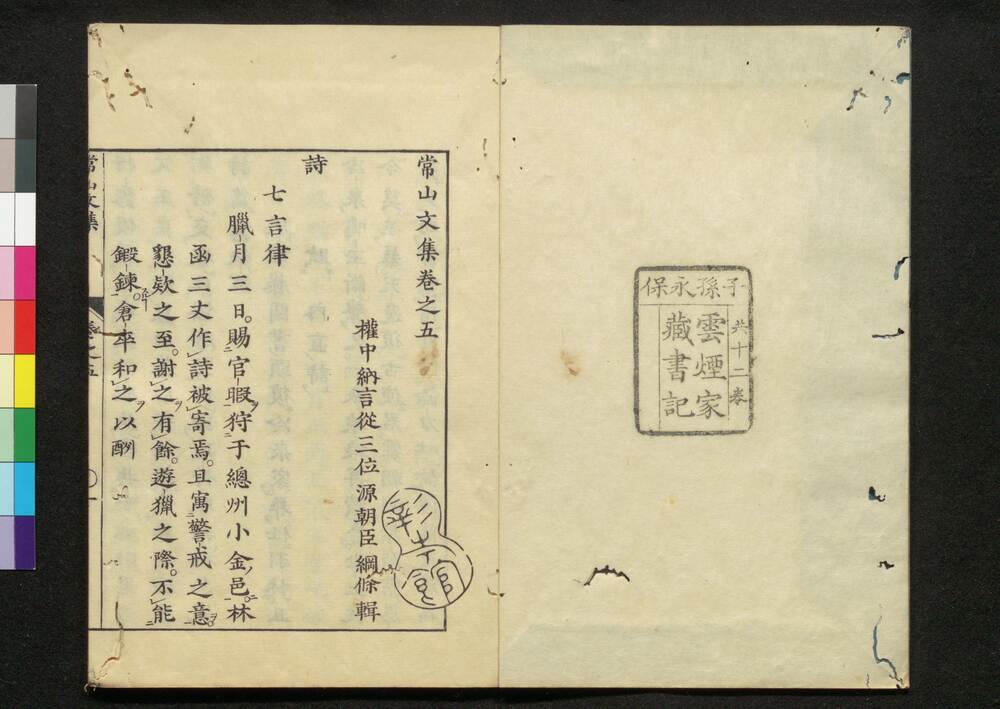 子孫永保
共十二卷
雲煙家
藏書記
常山文集卷之五
權中納言從三位源朝臣綱條輯
彰考館
詩
七言律
臘月三日。賜官暇狩于總州小金邑。林
函三丈作詩被寄焉。且寓警戒之意。
懇欵之至。謝之有餘。遊獵之際。不能
鍛鍊。倉卒和之以酬
常山文集